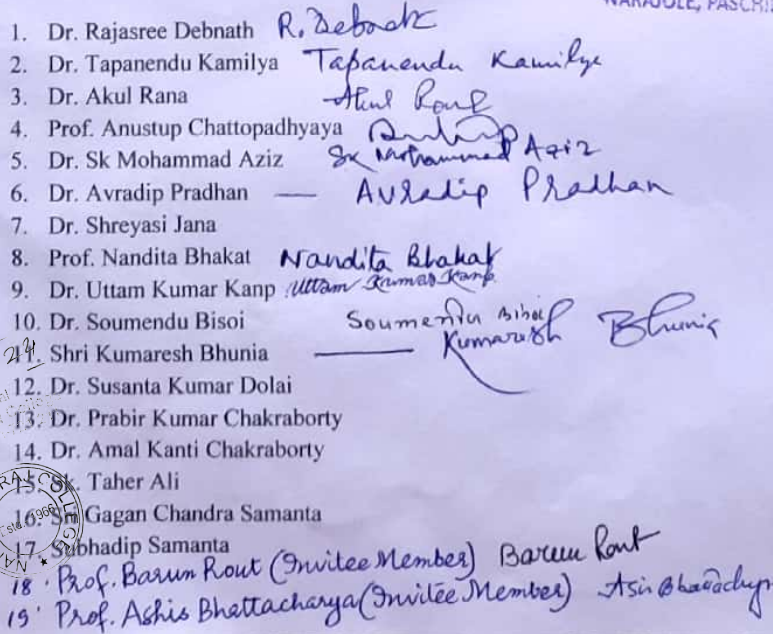 NARAJOLE, PASCHI
1. Dr. Rajasree Debnath R. Debnath
2. Dr. Tapanendu Kamilya Tapanendu Kamilya
3. Dr. Akul Rana Akul Rana
4. Prof. Anustup Chattopadhyaya
5. Dr. Sk Mohammad Aziz Sk Mohammad Aziz
6. Dr. Avradip Pradhan — Avradip Pradhan
7. Dr. Shreyasi Jana
8. Prof. Nandita Bhakat Nandita Bhakat
9. Dr. Uttam Kumar Kanp Uttam Kumar Kanp
10. Dr. Soumendu Bisoi Soumendu Bisoi
11. Shri Kumaresh Bhunia — Kumaresh Bhunia
12. Dr. Susanta Kumar Dolai
13. Dr. Prabir Kumar Chakraborty
14. Dr. Amal Kanti Chakraborty
15. Sk. Taher Ali
16. Sri Gagan Chandra Samanta
17. Subhadip Samanta
18. Prof. Barun Rout (Invitee Member) Barun Rout
19. Prof. Ashis Bhattacharya (Invitee Member)
RAJ COLLEGE
Estd. 1966